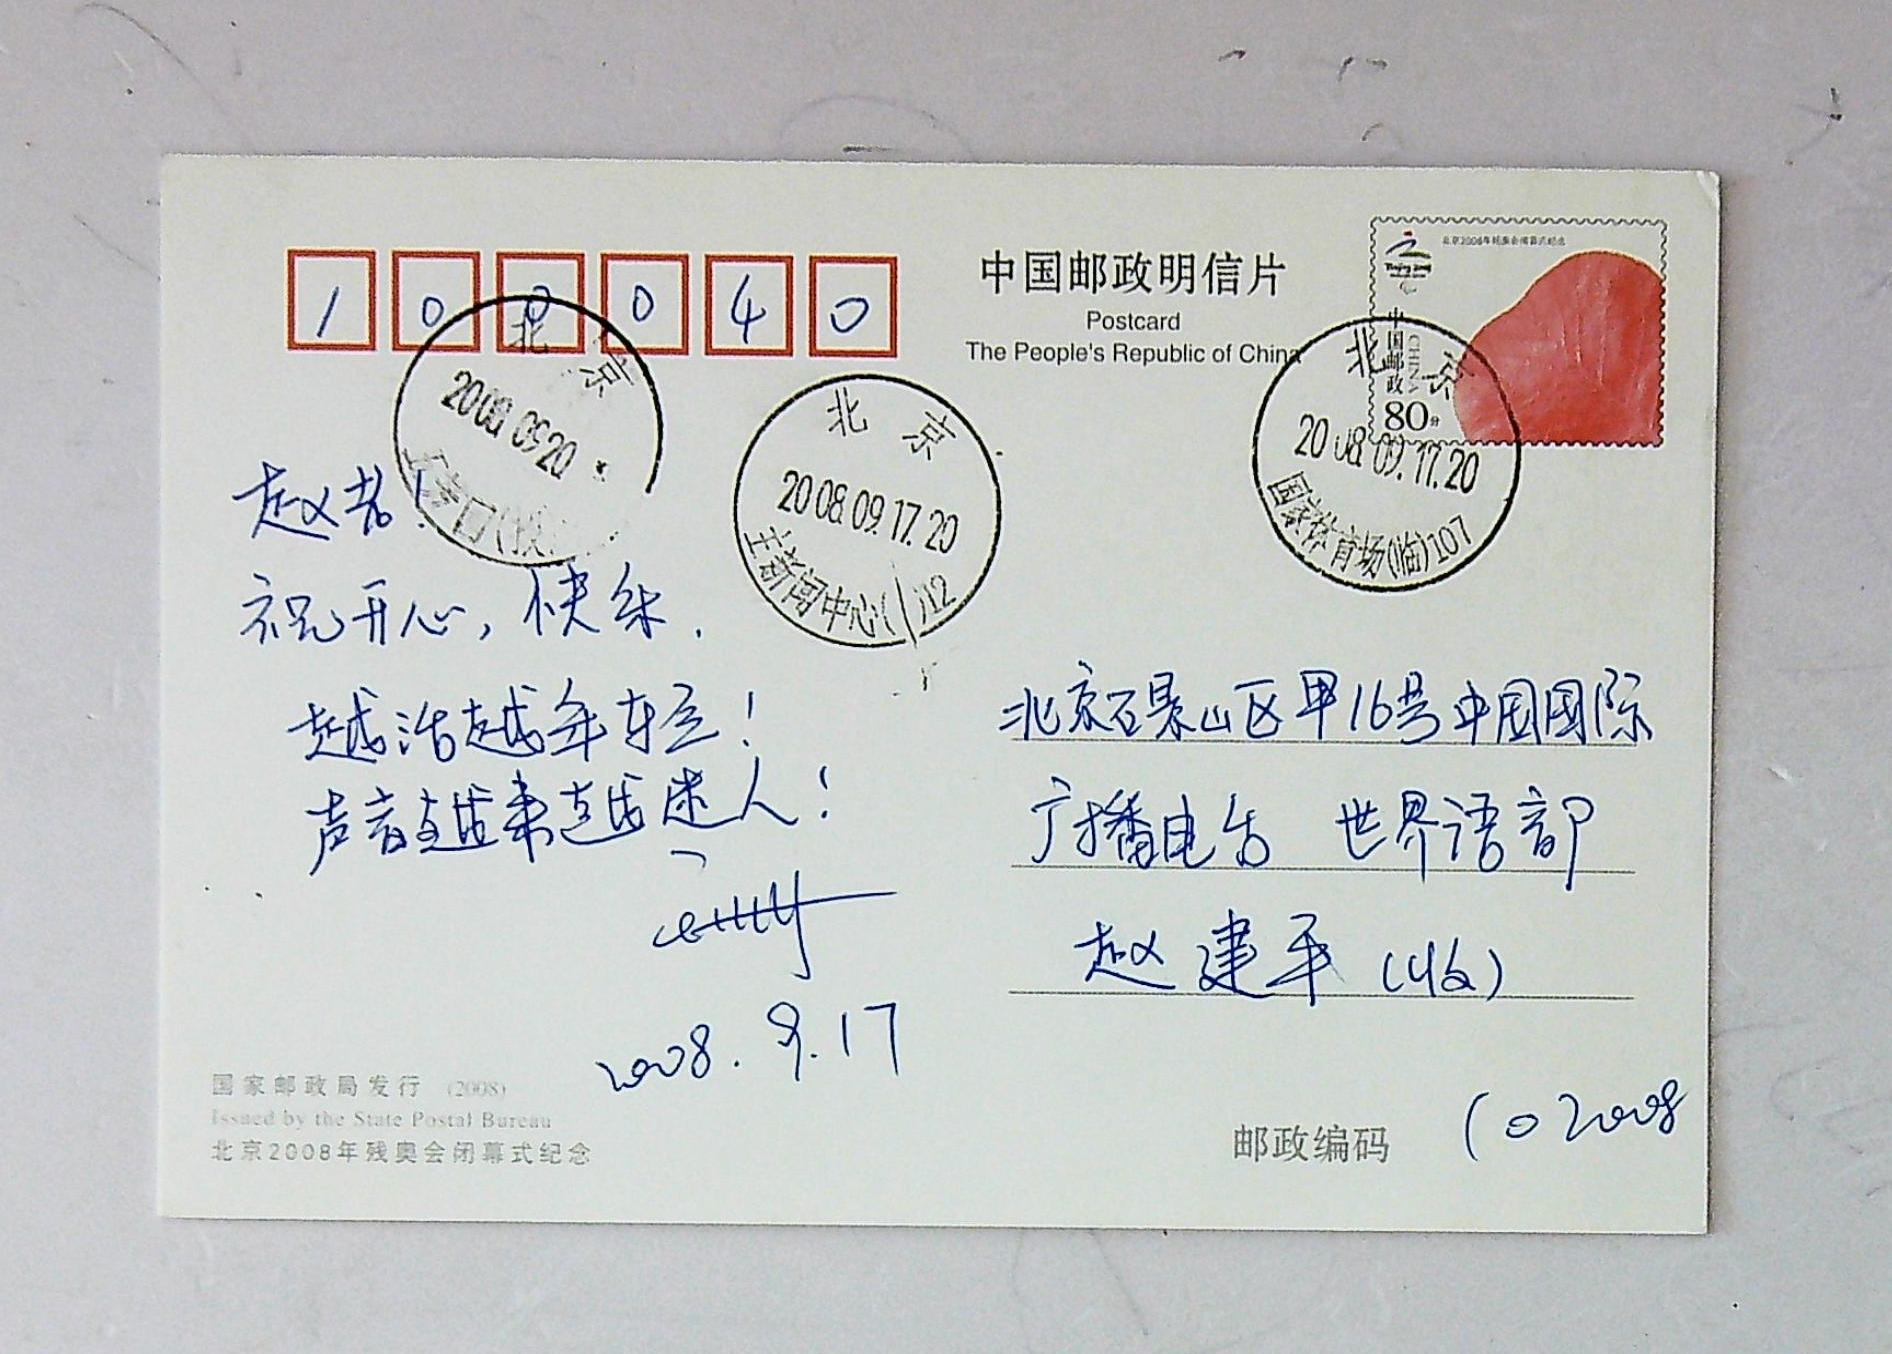 100040
中国邮政明信片
Postcard
The People's Republic of China
北京2008年残奥会闭幕式纪念
Beijing 2008
中国邮政
CHINA
80分
北京
2008.09.20
北京
2008.09.17.20
主新闻中心
112
北京
2008.09.17.20
国家体育场(临)107
赵老!
祝开心,快乐.
越活越年轻!
声音越来越迷人!
2008.9.17
北京石景山区甲16号中国国际
广播电台 世界语部
赵建平(收)
国家邮政局发行 (2008)
Issued by the State Postal Bureau
北京2008年残奥会闭幕式纪念
邮政编码 102008